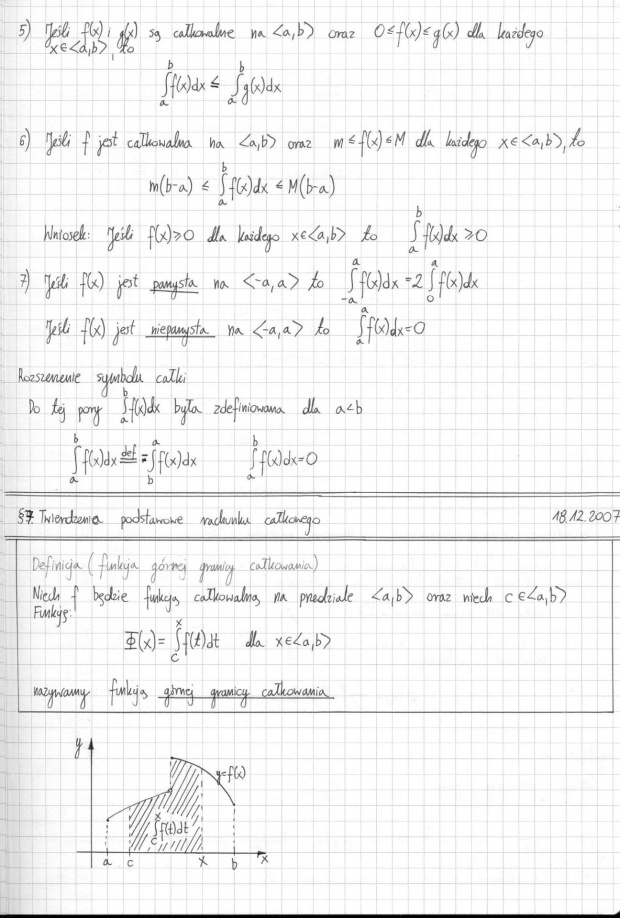 5) Jeśli f(x) i g(x) są całkowalne na <a,b> oraz 0≤f(x)≤g(x) dla każdego
x∈<a,b>, to
∫_a^b f(x)dx ≤ ∫_a^b g(x)dx
6) Jeśli f jest całkowalna na <a,b> oraz m≤f(x)≤M dla każdego x∈<a,b>, to
m(b-a) ≤ ∫_a^b f(x)dx ≤ M(b-a)
Wniosek: Jeśli f(x)≥0 dla każdego x∈<a,b> to ∫_a^b f(x)dx ≥0
7) Jeśli f(x) jest parzysta na <-a,a> to ∫_{-a}^a f(x)dx = 2∫_0^a f(x)dx
Jeśli f(x) jest nieparzysta na <-a,a> to ∫_a^a f(x)dx=0
Rozszerzenie symbolu całki
Do tej pory ∫_a^b f(x)dx była zdefiniowana dla a<b
∫_a^b f(x)dx def= -∫_b^a f(x)dx ∫_a^b f(x)dx=0
§7. Twierdzenia podstawowe rachunku całkowego 18.12.2007
Definicja (funkcja górnej granicy całkowania)
Niech f będzie funkcją całkowalną na przedziale <a,b> oraz niech c∈<a,b>
Funkcję:
Φ(x)= ∫_c^x f(t)dt dla x∈<a,b>
nazywamy funkcją górnej granicy całkowania
y
y=f(x)
∫_c^x f(t)dt
a c x b x